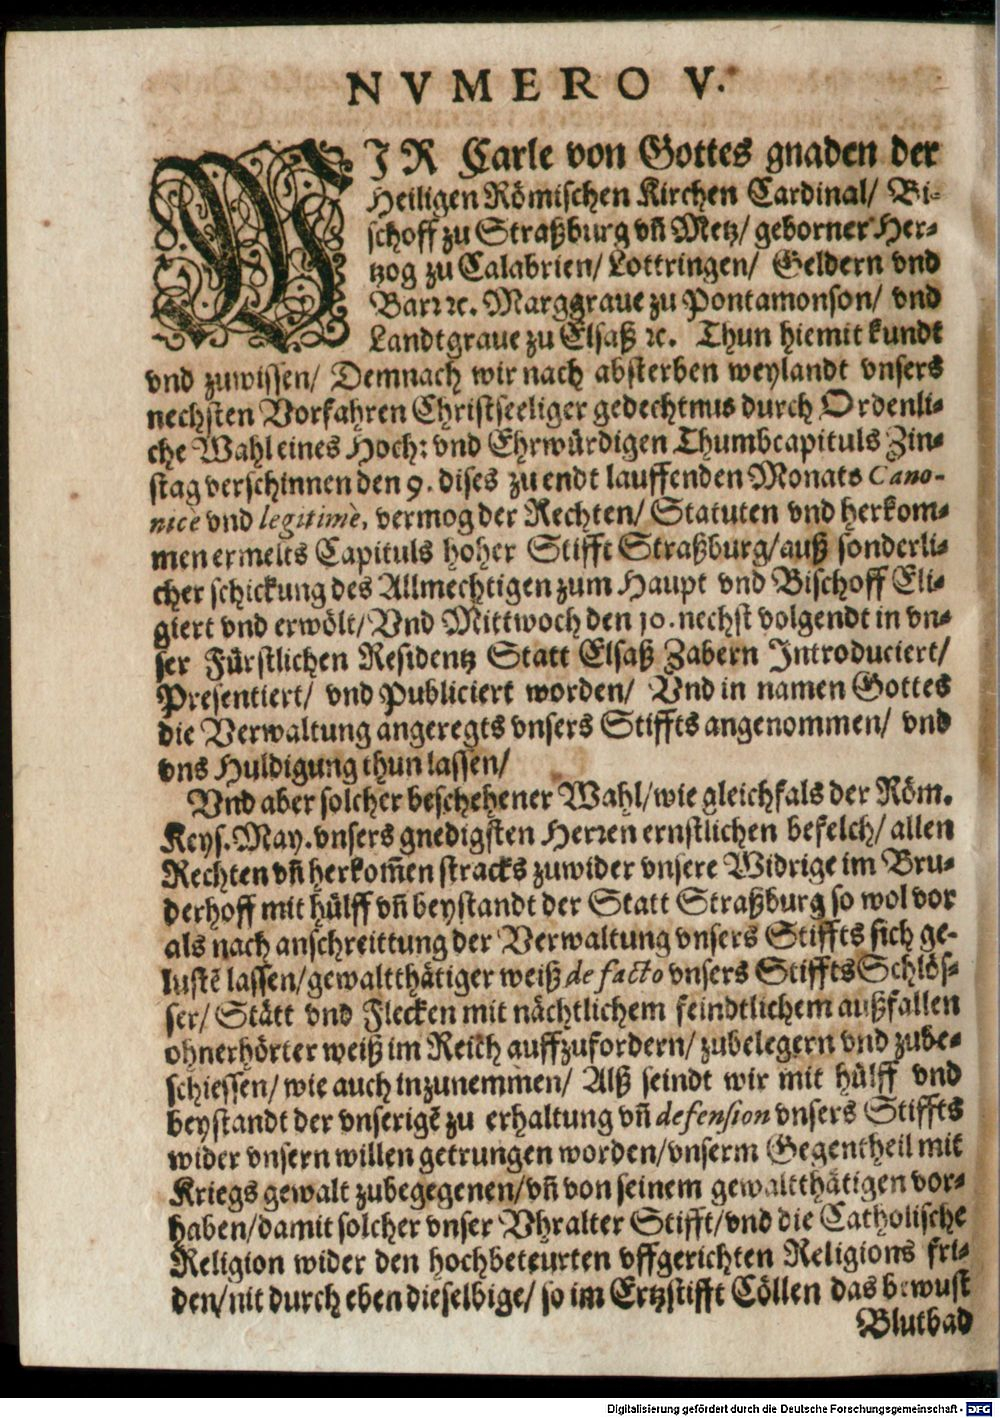 NVMERO V.
WJR Carle von Gottes gnaden der
Heiligen Römischen Kirchen Cardinal/ Bi-
schoff zu Straßburg vñ Metz/ geborner Her-
tzog zu Calabrien/ Lottringen/ Geldern vnd
Barr ꝛc. Marggraue zu Pontamonson/ vnd
Landtgraue zu Elsaß ꝛc. Thun hiemit kundt
vnd zuwissen/ Demnach wir nach absterben weylandt vnsers
nechsten Vorfahren Christseeliger gedechtnus durch Ordenli-
che Wahl eines Hoch: vnd Ehrwürdigen Thumbcapituls Zin-
stag verschinnen den 9. dises zu endt lauffenden Monats Cano-
nicè vnd legitimè, vermog der Rechten/ Statuten vnd herkom-
men ermelts Capituls hoher Stifft Straßburg/ auß sonderli-
cher schickung des Allmechtigen zum Haupt vnd Bischoff Eli-
giert vnd erwölt/ Vnd Mittwoch den 10. nechst volgendt in vn-
ser Fürstlichen Residentz Statt Elsaß Zabern Introduciert/
Presentiert/ vnd Publiciert worden/ Vnd in namen Gottes
die Verwaltung angeregts vnsers Stiffts angenommen/ vnd
vns Huldigung thun lassen/
Vnd aber solcher beschehener Wahl/ wie gleichfals der Röm.
Keys. May. vnsers gnedigsten Herren ernstlichen befelch/ allen
Rechten vñ herkom̃en stracks zuwider vnsere Widrige im Bru-
derhoff mit hülff vñ beystandt der Statt Straßburg so wol vor
als nach anschreittung der Verwaltung vnsers Stiffts sich ge-
lustẽ lassen/ gewaltthätiger weiß de facto vnsers Stiffts Schlös-
ser/ Stätt vnd Flecken mit nächtlichem feindtlichem außfallen
ohnerhörter weiß im Reich auffzufordern/ zubelegern vnd zube-
schiessen/ wie auch inzunemmen/ Alß seindt wir mit hülff vnd
beystandt der vnserigẽ zu erhaltung vñ defension vnsers Stiffts
wider vnsern willen getrungen worden/ vnserm Gegentheil mit
Kriegs gewalt zubegegenen/ vñ von seinem gewaltthätigen vor-
haben/ damit solcher vnser Vhralter Stifft/ vnd die Catholische
Religion wider den hochbeteurten vffgerichten Religions fri-
den/ nit durch eben dieselbige/ so im Ertzstifft Cöllen das bewust
Blutbad
Digitalisierung gefördert durch die Deutsche Forschungsgemeinschaft - DFG